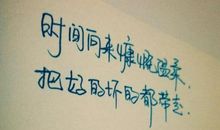 时间向来慷慨温柔
把好的坏的都带走.